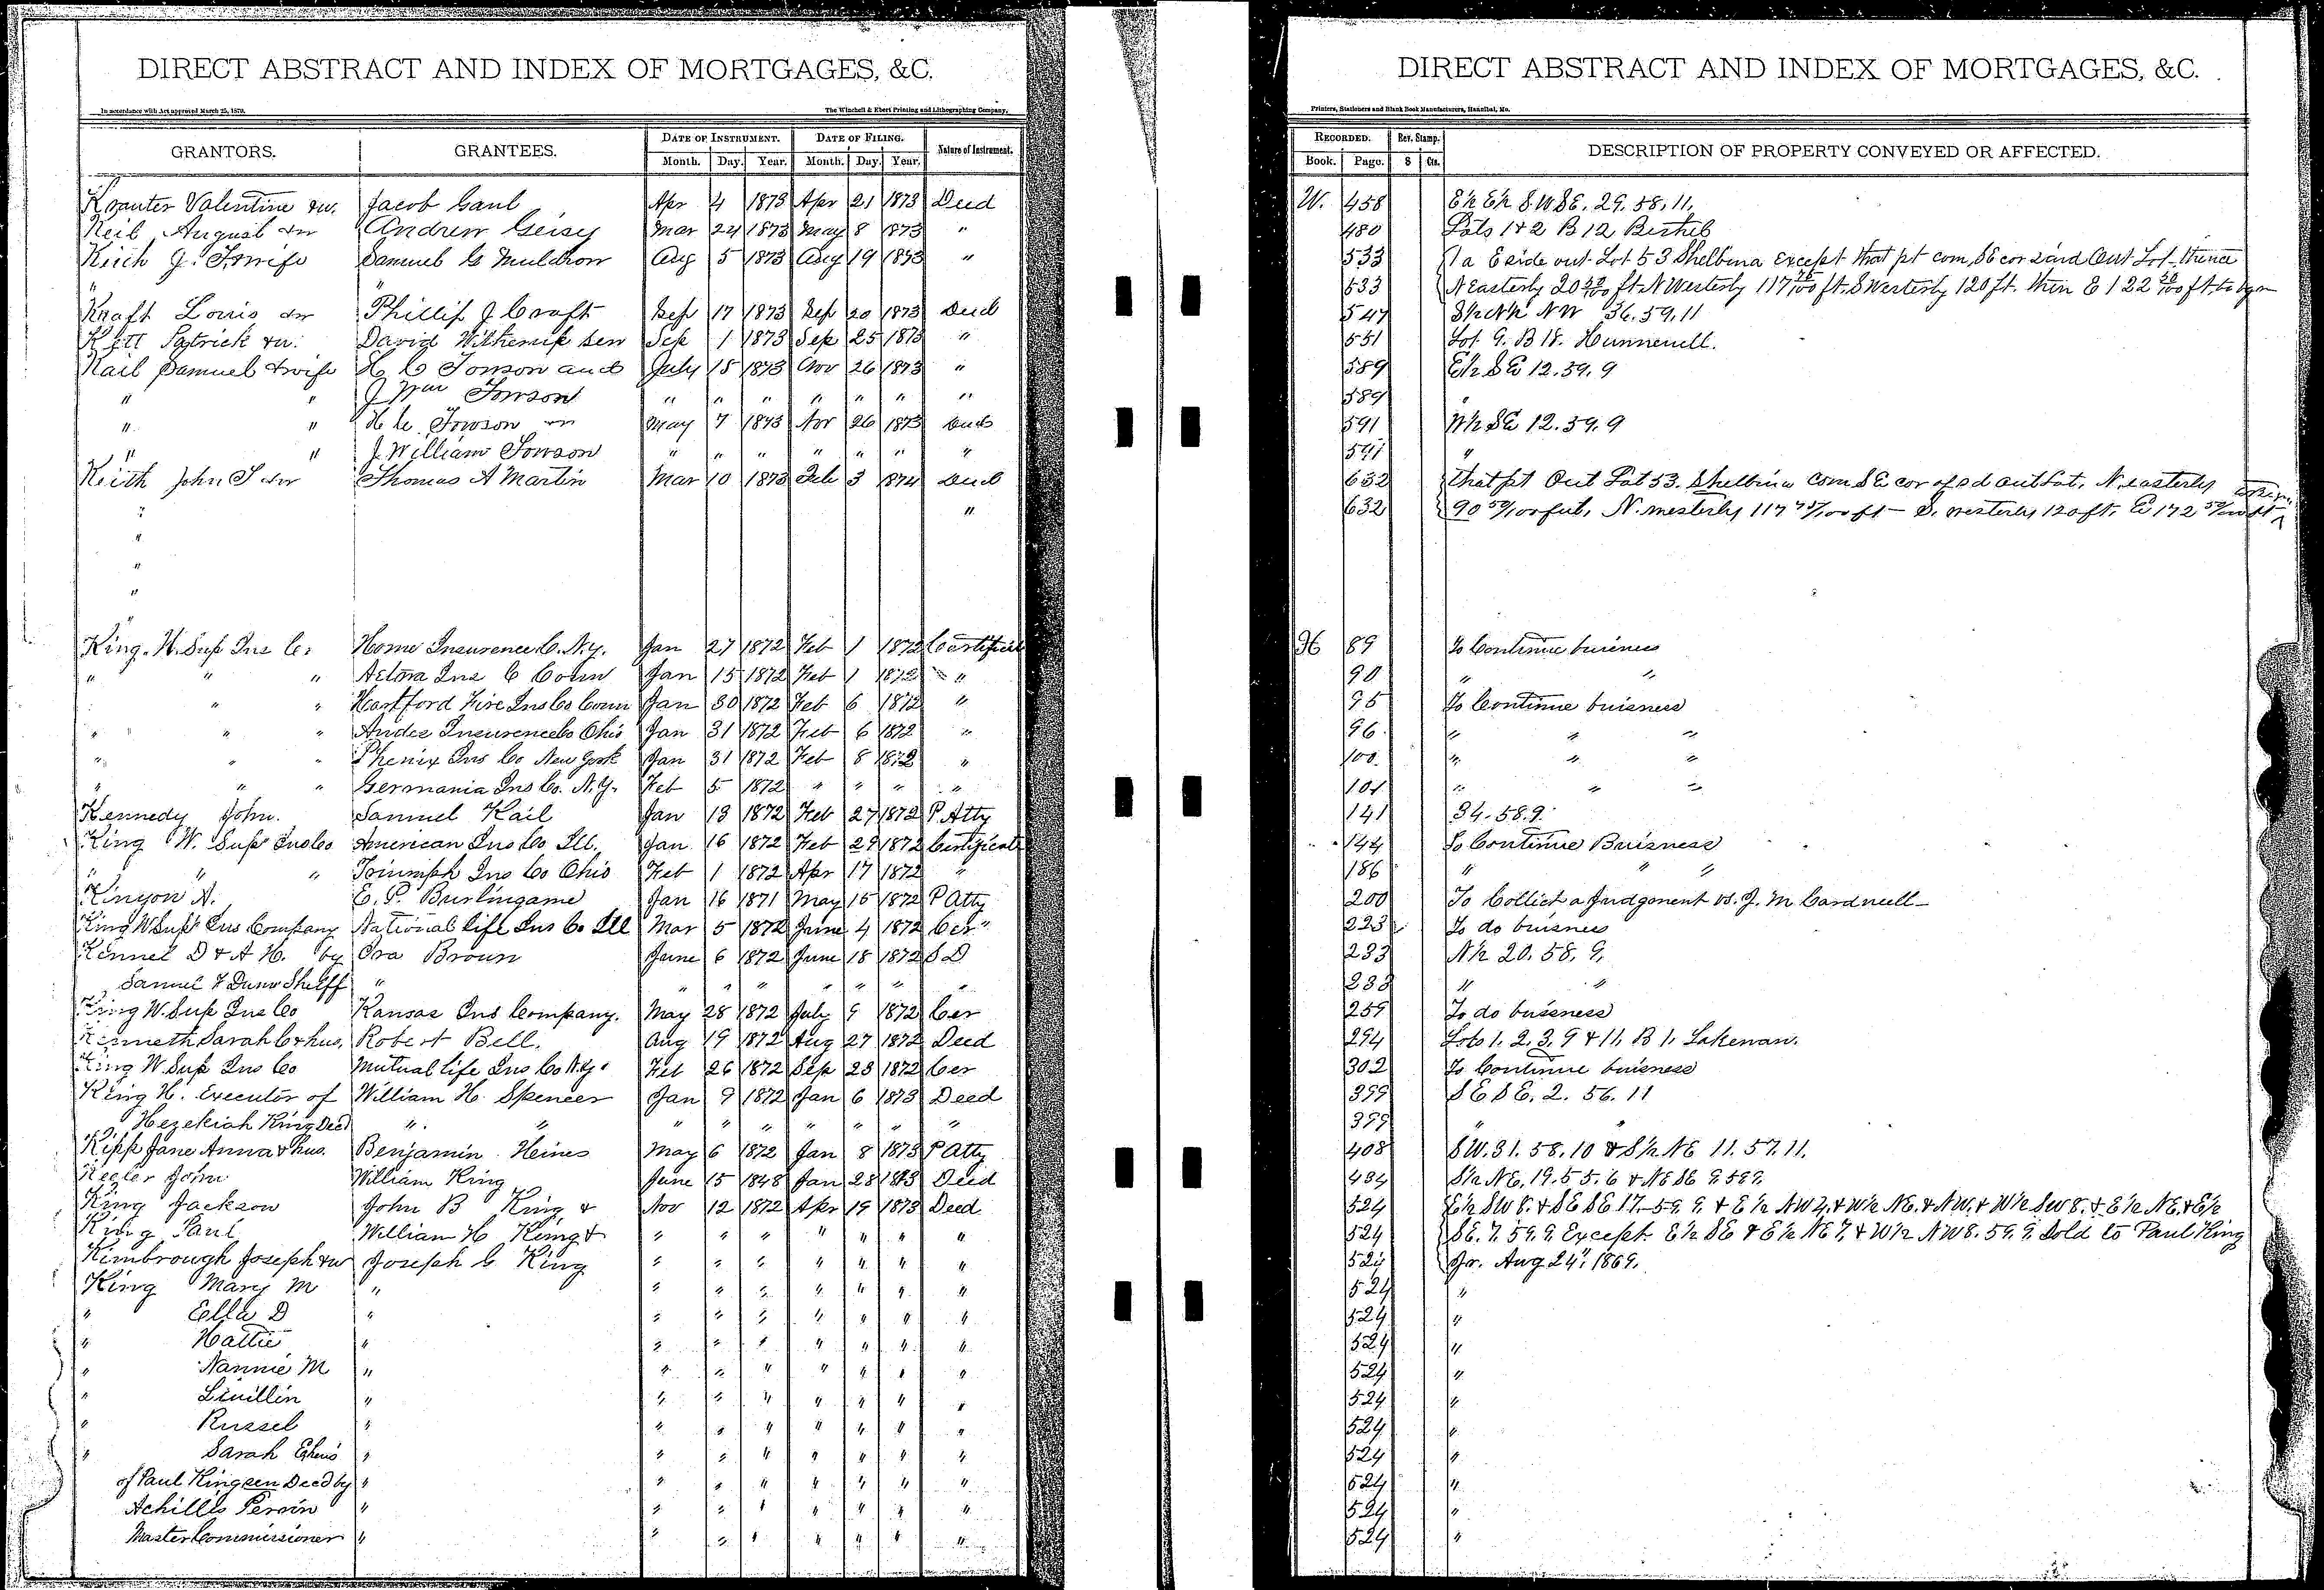 DIRECT ABSTRACT AND INDEX OF MORTGAGES, &C.
In accordance with Act approved March 25, 1870. The Winchell & Ebert Printing and Lithographing Company,
GRANTORS. GRANTEES. DATE OF INSTRUMENT. DATE OF FILING. Nature of Instrument.
Month. Day. Year. Month. Day. Year.
Krauter Valentine &w. Jacob Gaul Apr 4 1873 Apr 21 1873 Deed
Keil August &w Andrew Geisy Mar 24 1873 May 8 1873 "
Keith J. T & wife Samuel G Muldrow Aug 5 1873 Aug 19 1873 "
"
Kraft Louis &w Phillip J Craft Sep 17 1873 Sep 20 1873 Deed
Patrick &w. David Sen Sep 1 1873 Sep 25 1873 "
Kail Samuel & wife H C Towson and July 15 1873 Nov 26 1873 "
" " J Wm Towson " " " " " " "
" " H C. Towson May 7 1873 Nov 26 1873 Deed
" " J. William Towson " " " " " " "
Keith John T &w Thomas A Martin Mar 10 1873 Feb 3 1874 Deed
" "
"
"
"
"
King. W. Sup Ins Co: Home Insurence C. N.Y. Jan 27 1872 Feb 1 1872 Certificate
" " " Aetna Ins C Conn Jan 15 1872 Feb 1 1872 "
" " Hartford Fire Ins Co Conn Jan 30 1872 Feb 6 1872 "
" " " Andes Insurence Co Ohio Jan 31 1872 Feb 6 1872 "
" " " Phenix Ins Co New York Jan 31 1872 Feb 8 1872 "
" " " Germania Ins Co. N.Y. Feb 5 1872 " " " "
Kennedy John. Samuel Kail Jan 13 1872 Feb 27 1872 P Atty
King W. Sup Ins Co American Ins Co Ill. Jan 16 1872 Feb 29 1872 Certificate
" " " Triumph Ins Co Ohio Feb 1 1872 Apr 17 1872 "
Kinyon A. E. P. Burlingame Jan 16 1871 May 15 1872 P Atty
King W Sup Ins Company National Life Ins Co Ill Mar 5 1872 June 4 1872 Cer "
Kennel D & A H. by Ira Brown June 6 1872 June 18 1872 S D
Samuel F Dunn Sheff " " " " " " " "
King W. Sup Ins Co Kansas Ins Company. May 28 1872 July 9 1872 Cer
Kenneth Sarah C & hus, Robert Bell. Aug 19 1872 Aug 27 1872 Deed
King W. Sup Ins Co Mutual Life Ins Co N.Y. Feb 26 1872 Sep 23 1872 Cer
King H. Executor of William H. Spencer Jan 9 1872 Jan 6 1873 Deed
Hezekiah King Decd " " " " " " " " "
Kipp Jane Anna & hus. Benjamin Heines May 6 1872 Jan 8 1873 P Atty
Keeler John William King June 15 1848 Jan 28 1873 Deed
King Jackson John B King & Nov 12 1872 Apr 19 1873 Deed
King Paul William H King & " " " " " " "
Kimbrough Joseph &w Joseph C King " " " " " " "
King Mary M " " " " " " " "
" Ella D " " " " " " " "
" Hattie " " " " " " " "
" Nannie M " " " " " " " "
" " " " " " " " "
" Russel " " " " " " " "
" Sarah E heirs " " " " " " " "
of Paul King sen Decd by " " " " " " " "
Achilles Perrin " " " " " " " "
Master Commissioner " " " " " " " "
DIRECT ABSTRACT AND INDEX OF MORTGAGES, &C.
Printers, Stationers and Blank Book Manufacturers, Hannibal, Mo.
RECORDED. Rev. Stamp. DESCRIPTION OF PROPERTY CONVEYED OR AFFECTED.
Book. Page. $ Cts.
W. 458 E½ E½ S.W SE. 29. 58, 11,
480 Lots 1 & 2 B 12 Bethel
533 1 a E side out Lot 53 Shelbina Except that pt com, SE cor said Out Lot thence
533 N Easterly 20 50/100 ft N Westerly 117 75/100 ft. S Westerly 120 ft. then E 122 50/100 ft. to
547 S½ N½ NW 36. 59, 11
551 Lot 9. B 18. Hunnewell.
589 E½ SE 12. 59. 9
589 "
591 W½ SE 12. 59. 9
591 "
632 that pt Out Lot 53. Shelbina com SE cor of sd out Lot, N. easterly
632 90 50/100 feet, N. westerly 117 75/100 ft - S. westerly 120 ft, E 172 50/100 ft
H 89 To Continue buisness
90 " "
95 To Continue buisness
96 " " "
100 " " "
101 " " "
141 34. 58. 9.
144 To Continue Buisness
186 " " "
200 To Collect a Judgement vs. J. M Cardwell
223 To do buisness
233 N½ 20. 58, 9,
233 " "
259 To do buisness
294 Lots 1, 2, 3, 9 & 11, B 1, Lakenan.
302 To Continue buisness
399 SE SE. 2. 56. 11
399 " "
408 S W. 31. 58. 10 & S½ NE 11. 57. 11.
434 S½ NE, 19. 55. 6 & NE SE 9. 58 9.
524 E½ SW 8. & SE SE 17. 59. 9. & E½ NW & W½ NE. & NW, & W½ SW 8. & E½ NE, & E½
524 SE. 7. 59. 9. Except E½ SE & E½ NE 7. & W½ NW 8. 59. 9. Sold to Paul King
524 Jr. Aug 24", 1869.
524 "
524 "
524 "
524 "
524 "
524 "
524 "
524 "
524 "
524 "